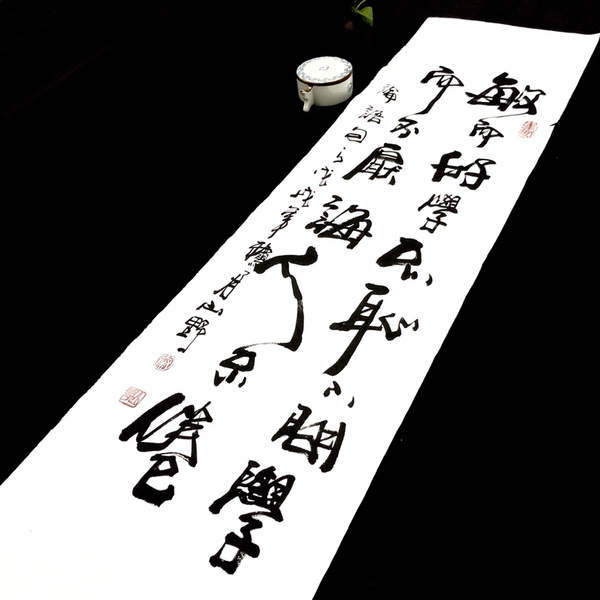 敏而好學不恥下問學
而不厭誨人不倦
論語句戊戌年月山野